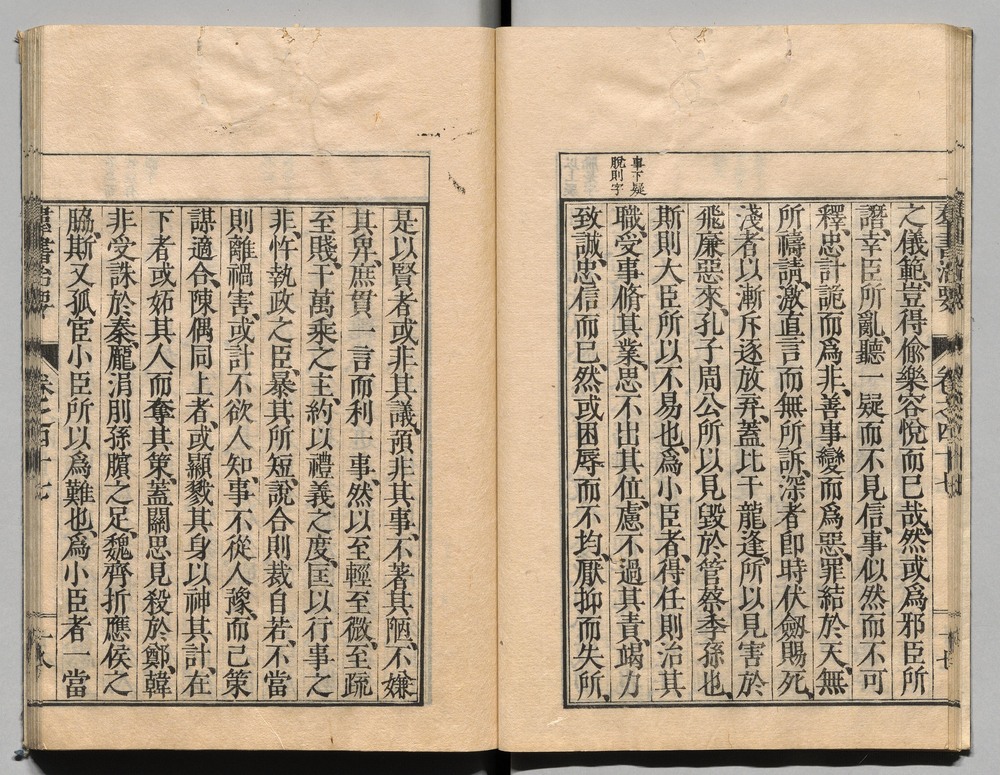 羣書治要 卷之四十七 七
之儀範、豈得偸樂容悅而已哉、然或爲邪臣所
譖、幸臣所亂、聽一疑而不見信、事似然而不可
釋、忠計詭而爲非、善事變而爲惡、罪結於天、無
所禱請、激直言而無所訴、深者卽時伏劔賜死、
淺者以漸斥逐放弃、蓋比干龍逢、所以見害於
飛廉惡來、孔子周公所以見毀於管蔡季孫也、
斯則大臣所以不易也、爲小臣者、得任則治其
職、受事脩其業、思不出其位、慮不過其責、竭力
致誠、忠信而已、然或困辱而不均、厭抑而失所、
事下疑
脫則字
是以賢者或非其議、預非其事、不著其陋、不嫌
其卑、庶貫一言而利一事、然以至輕至微、至疏
至賤、干萬乘之主、約以禮義之度、匡以行事之
非、忤執政之臣、暴其所短、說合則裁自若、不當
則離禍害、或計不欲人知、事不從人豫、而己策
謀適合、陳偶同上者、或顯戮其身、以神其計、在
下者或妬其人而奪其策、蓋關思見殺於鄭、韓
非受誅於秦、龐涓刖孫臏之足、魏齊折應侯之
脇、斯又孤宦小臣所以爲難也、爲小臣者一當
羣書治要 卷之四十七 八